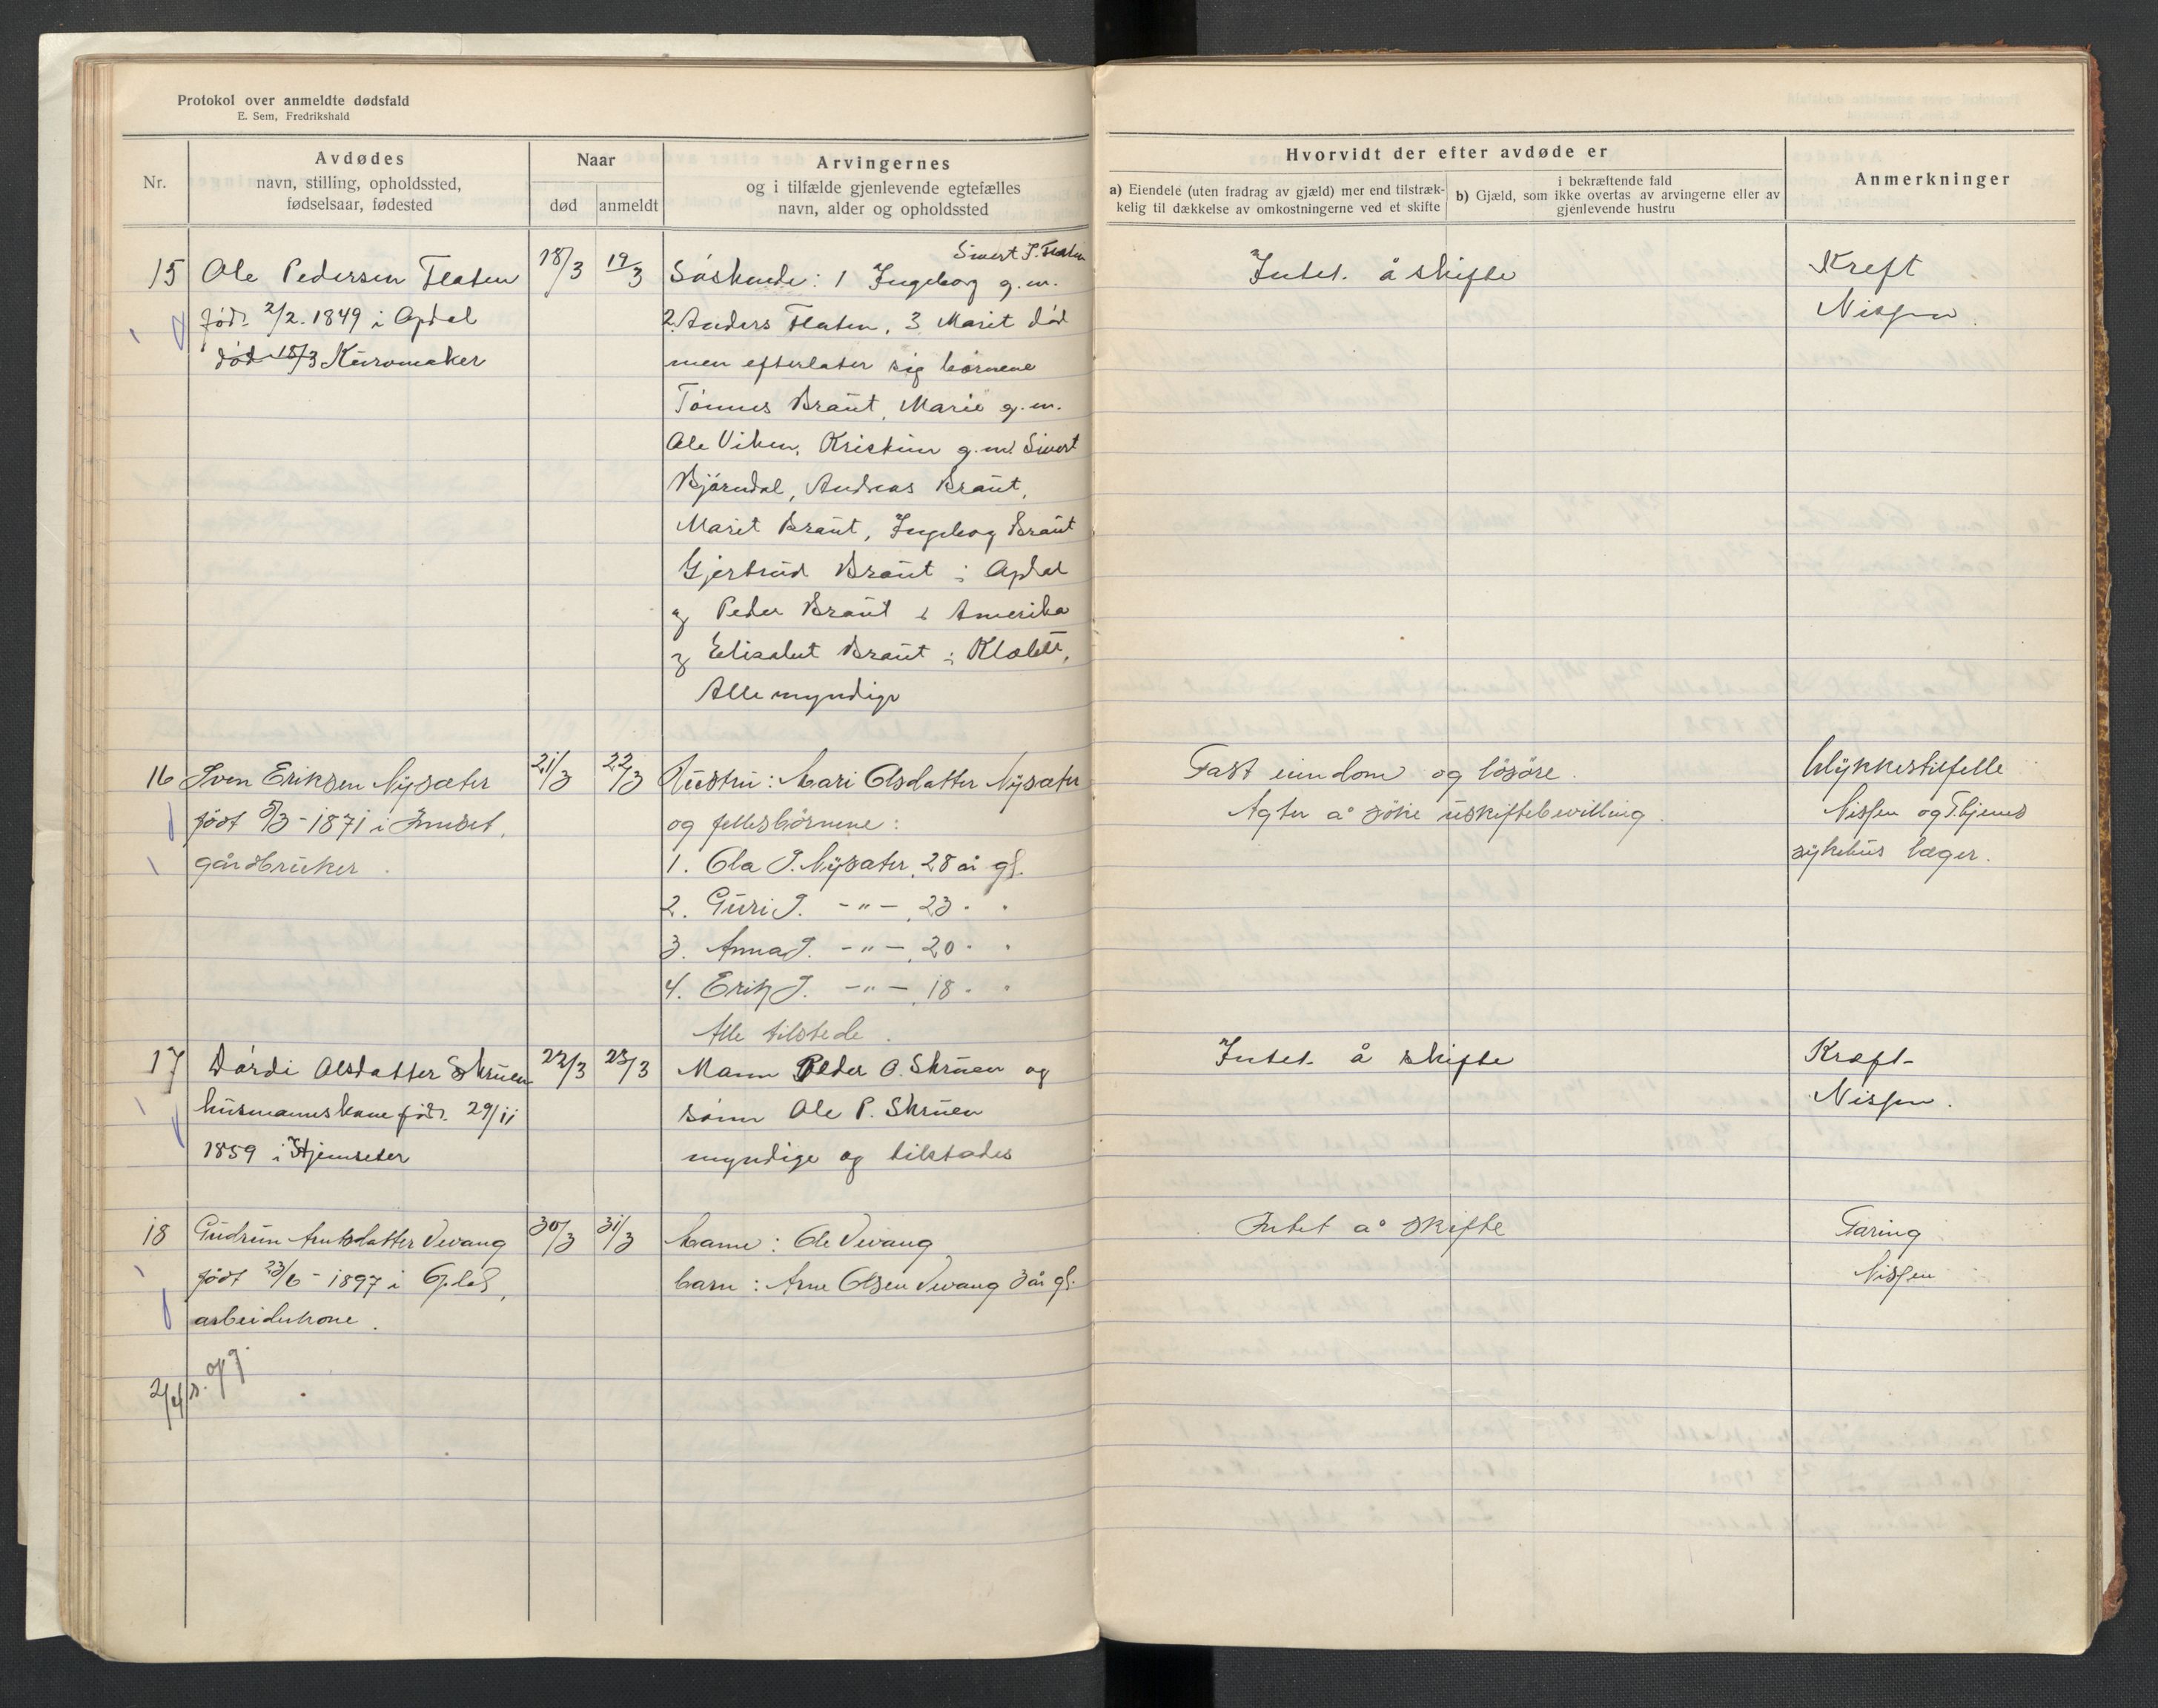 Protokol over anmeldte dødsfald
E. Sem, Fredrikshald
Nr.
Avdødes
navn, stilling, opholdssted,
fødselsaar, fødested
Naar
død
anmeldt
Arvingernes
og i tilfælde gjenlevende egtefælles
navn, alder og opholdssted
Hvorvidt der efter avdøde er
a) Eiendele (uten fradrag av gjæld) mer end tilstræk-
kelig til dækkelse av omkostningerne ved et skifte
i bekræftende fald
b) Gjæld, som ikke overtas av arvingerne eller av
gjenlevende hustru
Anmerkninger
15 Ole Pedersen Flaten 18/3 19/3
fød. 2/2. 1849 i Opdal
død 18/3 Kurvmaker
Sivert J. Flaten
Søskende: 1 Ingeborg g.m.
2. Anders Flaten, 3. Marit død
men efterlater sig børnene
Tønnes Braut, Marie g.m.
Ole Viken, Kristine g.m. Sivert
Bjørndal, Andreas Braut,
Marit Braut, Ingeborg Braut
Gjertrud Braut i Opdal
og Peder Braut i Amerika
og Elisabet Braut i Klæbu,
Alle myndige
Intet å skifte
Kreft
Nissen.
16 Sven Eriksen Nysæter 21/3 22/3
født 5/3-1871 i Innset,
gårdbruker.
Hustru: Mari Olsdatter Nysæter
og fellesbørnene:
1. Ola S. Nysæter, 28 år gl.
2. Guri S. -"-, 23 " "
3. Anna S. -"-, 20 " "
4. Erik S. -"-, 18 " "
Alle tilstede.
Fast eiendom og løsøre.
Agter å søke uskiftebevilling.
Ulykkestilfelle
Nissen og
sykehus læger.
17 Dordi Olsdatter Skruen 22/3 23/3
husmannskone fød. 29/11
1859 i
Mann Peder O. Skruen og
sønn Ole P. Skruen
myndige og tilstædes
Intet å skifte
Kræft-
Nissen.
18 Gudrun Arntsdatter Vevang 30/3 31/3
født 23/6-1897 i Opdal,
arbeiderkone.
Mann: Ole Vevang
barn: Arne Olsen Vevang 3 år gl.
Intet å skifte
Tæring
Nissen
2/4